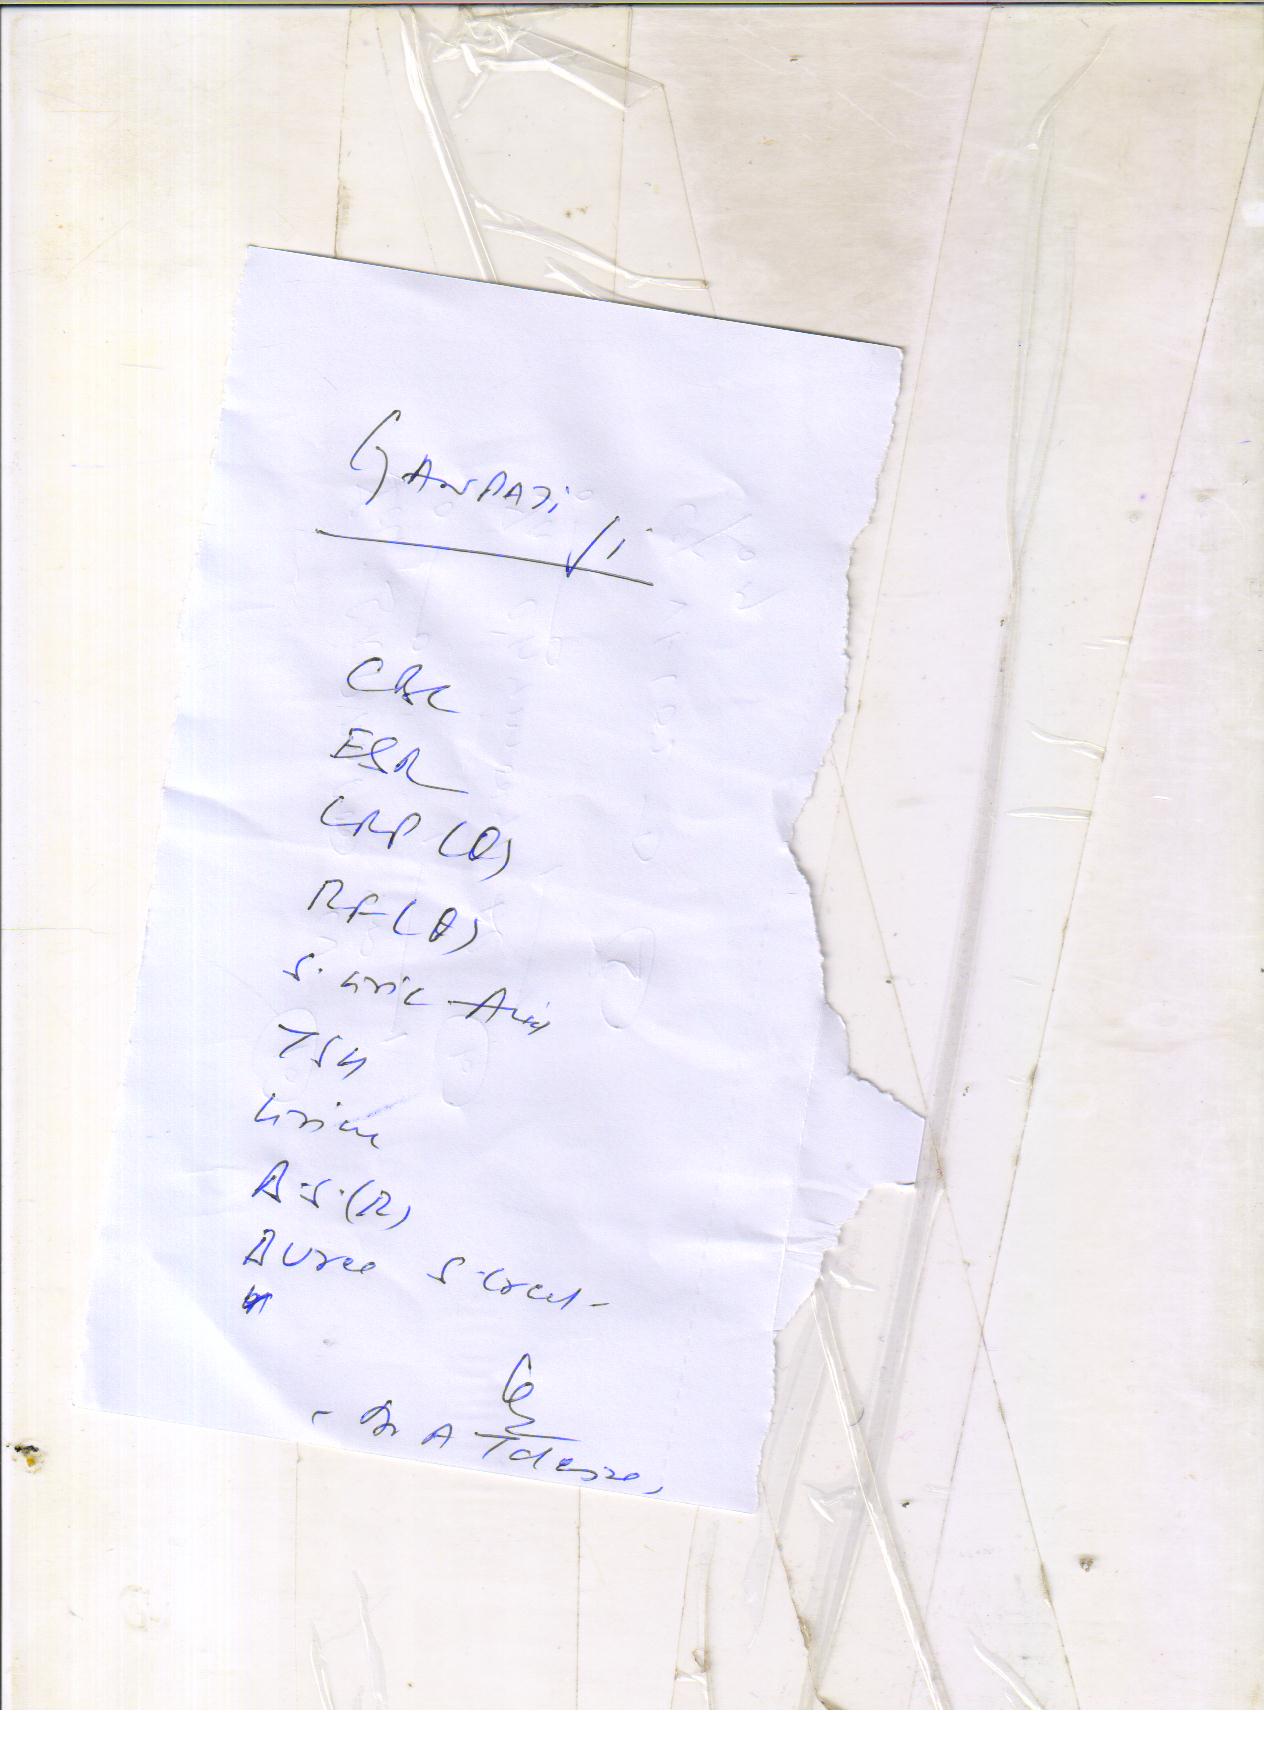 GANPATi Ji
CBC
ESR
CRP (Q)
RF (Q)
S. Uric Acid
TSH
Urine
B.S. (R)
B Urea S. Creat -
- Dr A